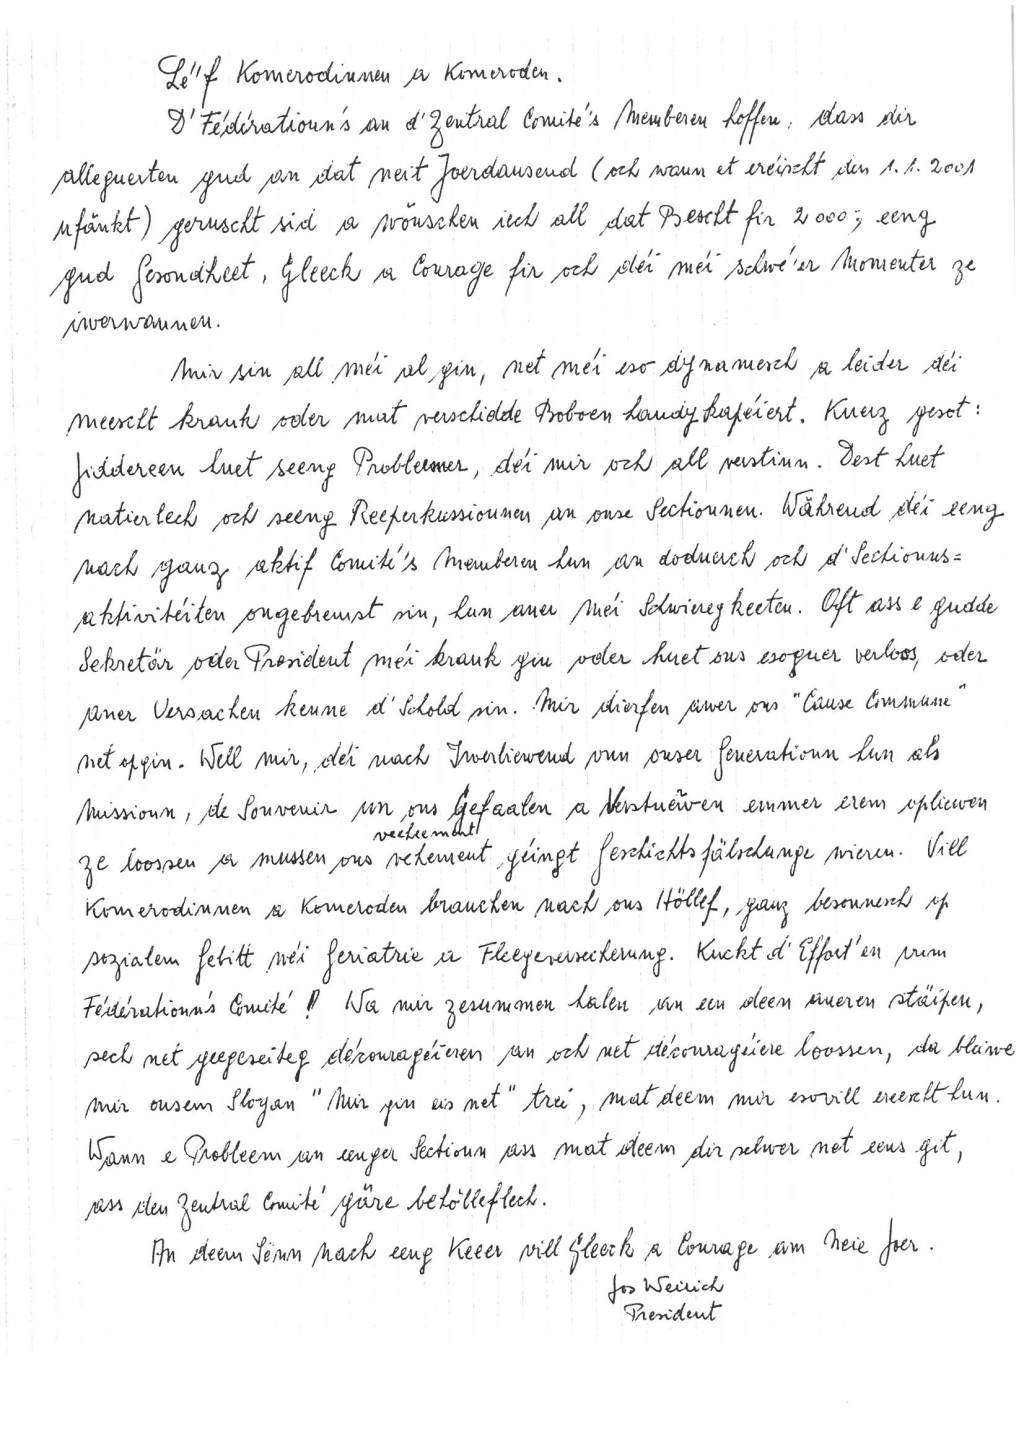 Lé"f Komerodinnen a Komeroden.
D'Fédératioun's an d'Zentral Comité's Memberen hoffen, dass dir
alleguerten gud an dat neit Joerdausend (och wann et eréischt den 1.1.2001
ufänkt) geruscht sid a wönschen iech all dat Bescht fir 2000; eeng
gud Gesondheet, Gleeck a Courage fir och déi méi schwé'er Momenter ze
iwerwannen.
Mir sin all méi al gin, net méi eso dynamesch a leider déi
meescht krank oder mat verschidde Boboen handykapéiert. Kuerz gesot:
Jiddereen huet seeng Probleemer, déi mir och all verstinn. Dest huet
natierlech och seeng Reeperkussiounen an onse Sectiounen. Während déi eeng
nach ganz aktif Comité's Memberen hun an doduerch och d'Sectiouns=
aktivitéiten ongebremst sin, hun aner méi Schwieregkeeten. Oft ass e gudde
Sekretär oder President méi krank gin oder huet ons esoguer verloos, oder
aner Versachen kenne d'Schold sin. Mir dierfen awer ons "Cause Commune"
net opgin. Well mir, déi nach Iwerliewend vun onser Generatioun hun als
Missioun, de Souvenir un ons Gefaalen a Verstuewen emmer erem opliewen
veeheement
ze loossen a mussen ons vehement géingt Geschichtsfälschunge wieren. Vill
Komerodinnen a Komeroden brauchen nach ons Höllef, ganz besonnesch op
sozialem Gebitt wéi Geriatrie a Fleegeversecherung. Kuckt d'Effort'en vum
Fédératioun's Comité! Wa mir zesummen halen an een deem aneren stäipen,
sech net geegeseiteg découragéieren an och net découragéiere loossen, da bleiwe
mir onsem Slogan "Mir gin eis net" trei, mat deem mir esovill erreecht hun.
Wann e Probleem an eenger Sectioun ass mat deem dir selwer net eens git,
ass den Zentral Comité gäre behölleflech.
An deem Sënn nach eeng Keeer vill Gleeck a Courage am Neie Joer.
Jos Weirich
President